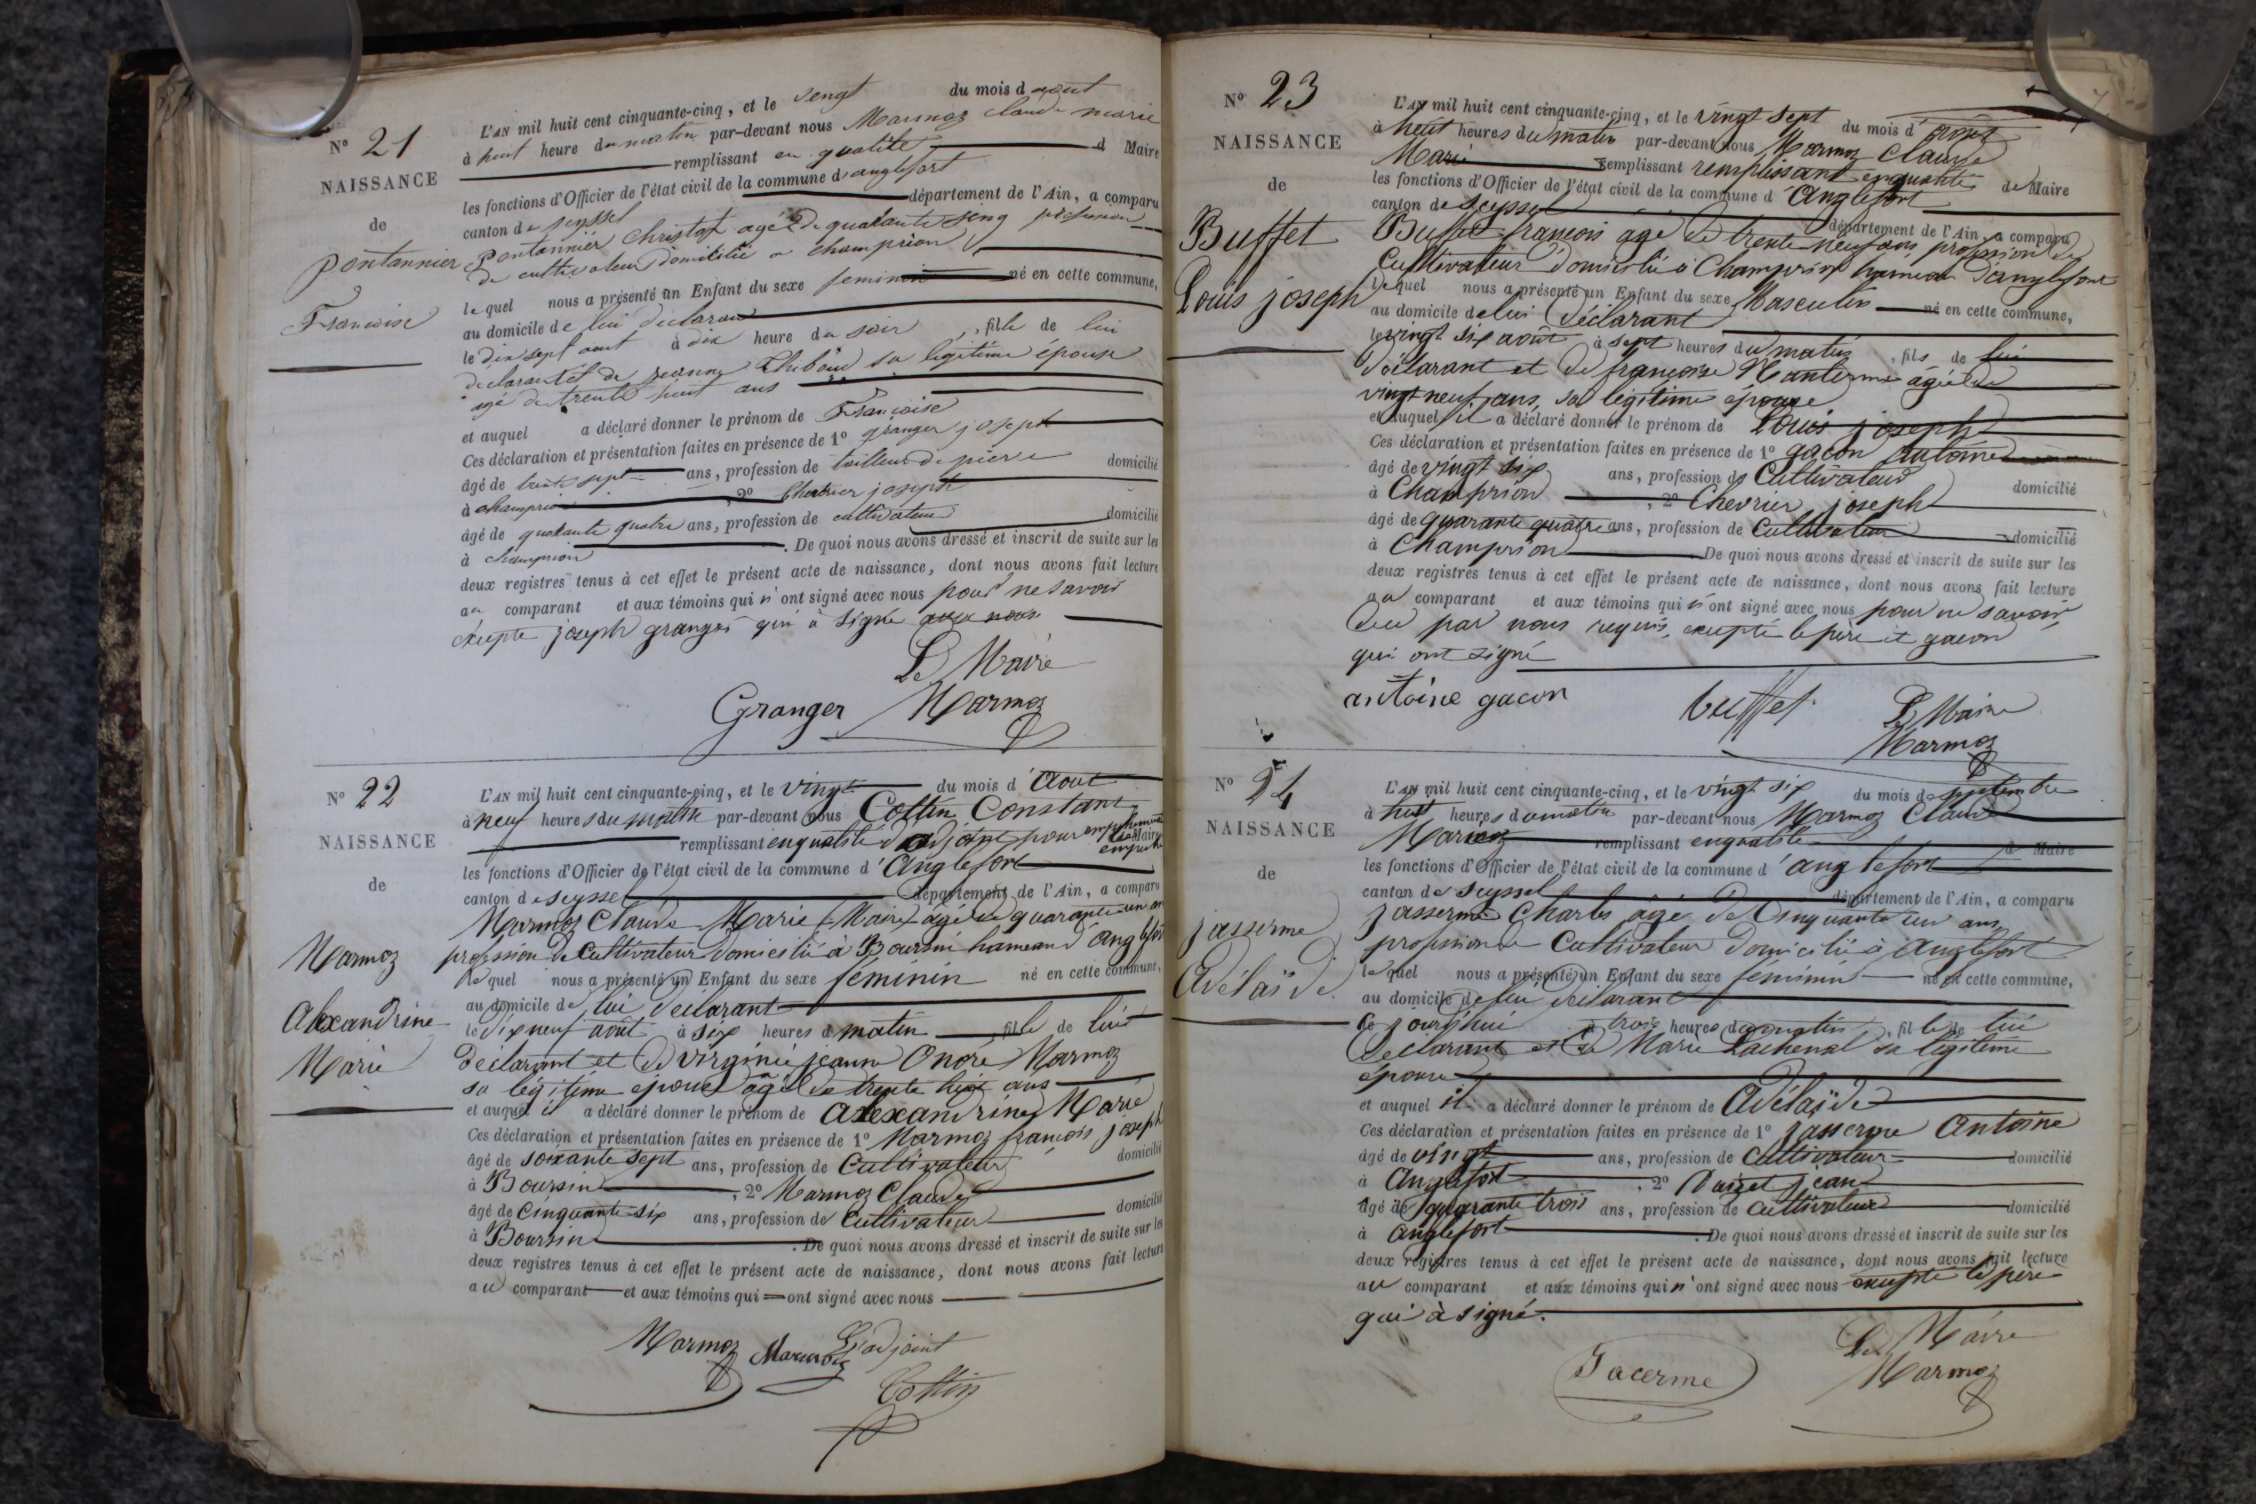 N° 21
NAISSANCE
de
pontannier
Francoise
L'AN mil huit cent cinquante-cinq, et le vengt du mois d aout
à huit heure du matin par-devant nous Marmoz claude marie
remplissant en qualité d Maire
les fonctions d'Officier de l'état civil de la commune d'anglefort
canton de seyssel département de l'Ain, a comparu
pontannier Christof agé de quarante sinq profession
de cultivateur domicilié a champrion
lequel nous a présenté un Enfant du sexe feminin né en cette commune,
au domicile de lui declarant
le dix sept aout à dix heure du soir, fille de lui
declarant et de jeanne Thiboud sa légitime épouse
agé de trente huit ans
et auquel a déclaré donner le prénom de Francoise
Ces déclaration et présentation faites en présence de 1° granger joseph
âgé de trente sept ans, profession de tailleur de pierre domicilié
à champrion, 2° Chevrier joseph
âgé de quarante quatre ans, profession de cultivateur domicilié
à champrion. De quoi nous avons dressé et inscrit de suite sur les
deux registres tenus à cet effet le présent acte de naissance, dont nous avons fait lecture
au comparant et aux témoins qui n'ont signé avec nous pour ne savoir
éxepte joseph granger qui à signé avec nous
Le Maire
Granger Marmoz
N° 22
NAISSANCE
de
Marmoz
Alexandrine
Marie
L'AN mil huit cent cinquante-cinq, et le vingt du mois d'Aout
à neuf heures du matin par-devant nous Cottin Constant
remplissant en qualité d'adjoint pour Maire
les fonctions d'Officier de l'état civil de la commune d'Anglefort
canton de seyssel département de l'Ain, a comparu
Marmoz Claude Marie Maire agé de quarante un an
profession de Cultivateur domicilié à Boursin hameau d'Anglefort
lequel nous a présenté un Enfant du sexe féminin né en cette commune,
au domicile de lui déclarant
le dix neuf août à six heures d matin fille de lui
déclarant et de virginie jeanne Onore Marmoz
sa légitime épouse âgé de trente huit ans
et auquel il a déclaré donner le prénom de Alexandrine Marie
Ces déclaration et présentation faites en présence de 1° Marmoz françois joseph
âgé de soixante sept ans, profession de Cultivateur domicilié
à Boursin, 2° Marmoz Claude
âgé de cinquante six ans, profession de Cultivateur domicilié
à Boursin. De quoi nous avons dressé et inscrit de suite sur les
deux registres tenus à cet effet le présent acte de naissance, dont nous avons fait lecture
au comparant et aux témoins qui ont signé avec nous
Marmoz Marmoz L'adjoint
Cottin
N° 23
NAISSANCE
de
Buffet
Louis joseph
L'AN mil huit cent cinquante-cinq, et le vingt sept du mois d'août
à huit heures du matin par-devant nous Marmoz Claude
Marie remplissant remplissant en qualité de Maire
les fonctions d'Officier de l'état civil de la commune d'Anglefort
canton de seyssel département de l'Ain, a comparu
Buffet françois âgé de trente neuf ans, profession de
Cultivateur domicilié à Champrion hameau d'anglefort
lequel nous a présenté un Enfant du sexe Masculin né en cette commune,
au domicile de lui déclarant
le vingt six août à sept heures du matin, fils de lui
déclarant et de françoise âgée de
vingt neuf ans, sa légitime épouse
et auquel il a déclaré donner le prénom de Louis joseph
Ces déclaration et présentation faites en présence de 1° gacon antoine
âgé de vingt six ans, profession de Cultivateur domicilié
à Champrion, 2° Chevrier joseph
âgé de quarante quatre ans, profession de Cultivateur domicilié
à Champrion. De quoi nous avons dressé et inscrit de suite sur les
deux registres tenus à cet effet le présent acte de naissance, dont nous avons fait lecture
au comparant et aux témoins qui n'ont signé avec nous pour ne savoir,
par nous requis, excepté le père et gacon
qui ont signé
antoine gacon buffet Le Maire
Marmoz
N° 24
NAISSANCE
de
jasserme
Adélaïde
L'AN mil huit cent cinquante-cinq, et le vingt six du mois de septembre
à huit heures du matin par-devant nous Marmoz Claude
Marie remplissant en qualité d Maire
les fonctions d'Officier de l'état civil de la commune d'anglefort
canton de seyssel département de l'Ain, a comparu
jasserme Charles âgé de Cinquante un ans
profession de Cultivateur domicilié à Anglefort
lequel nous a présenté un Enfant du sexe féminin né en cette commune,
au domicile de lui déclarant
le jourd'hui à trois heures du matin, fille de lui
déclarant et de Marie Lachenal sa légitime
épouse
et auquel il a déclaré donner le prénom de Adélaïde
Ces déclaration et présentation faites en présence de 1° jasserme Antoine
âgé de vingt ans, profession de Cultivateur domicilié
à Anglefort, 2° jean
âgé de quarante trois ans, profession de Cultivateur domicilié
à anglefort. De quoi nous avons dressé et inscrit de suite sur les
deux registres tenus à cet effet le présent acte de naissance, dont nous avons fait lecture
au comparant et aux témoins qui n'ont signé avec nous excepté le père
qui à signé.
Jacerme Le Maire
Marmoz